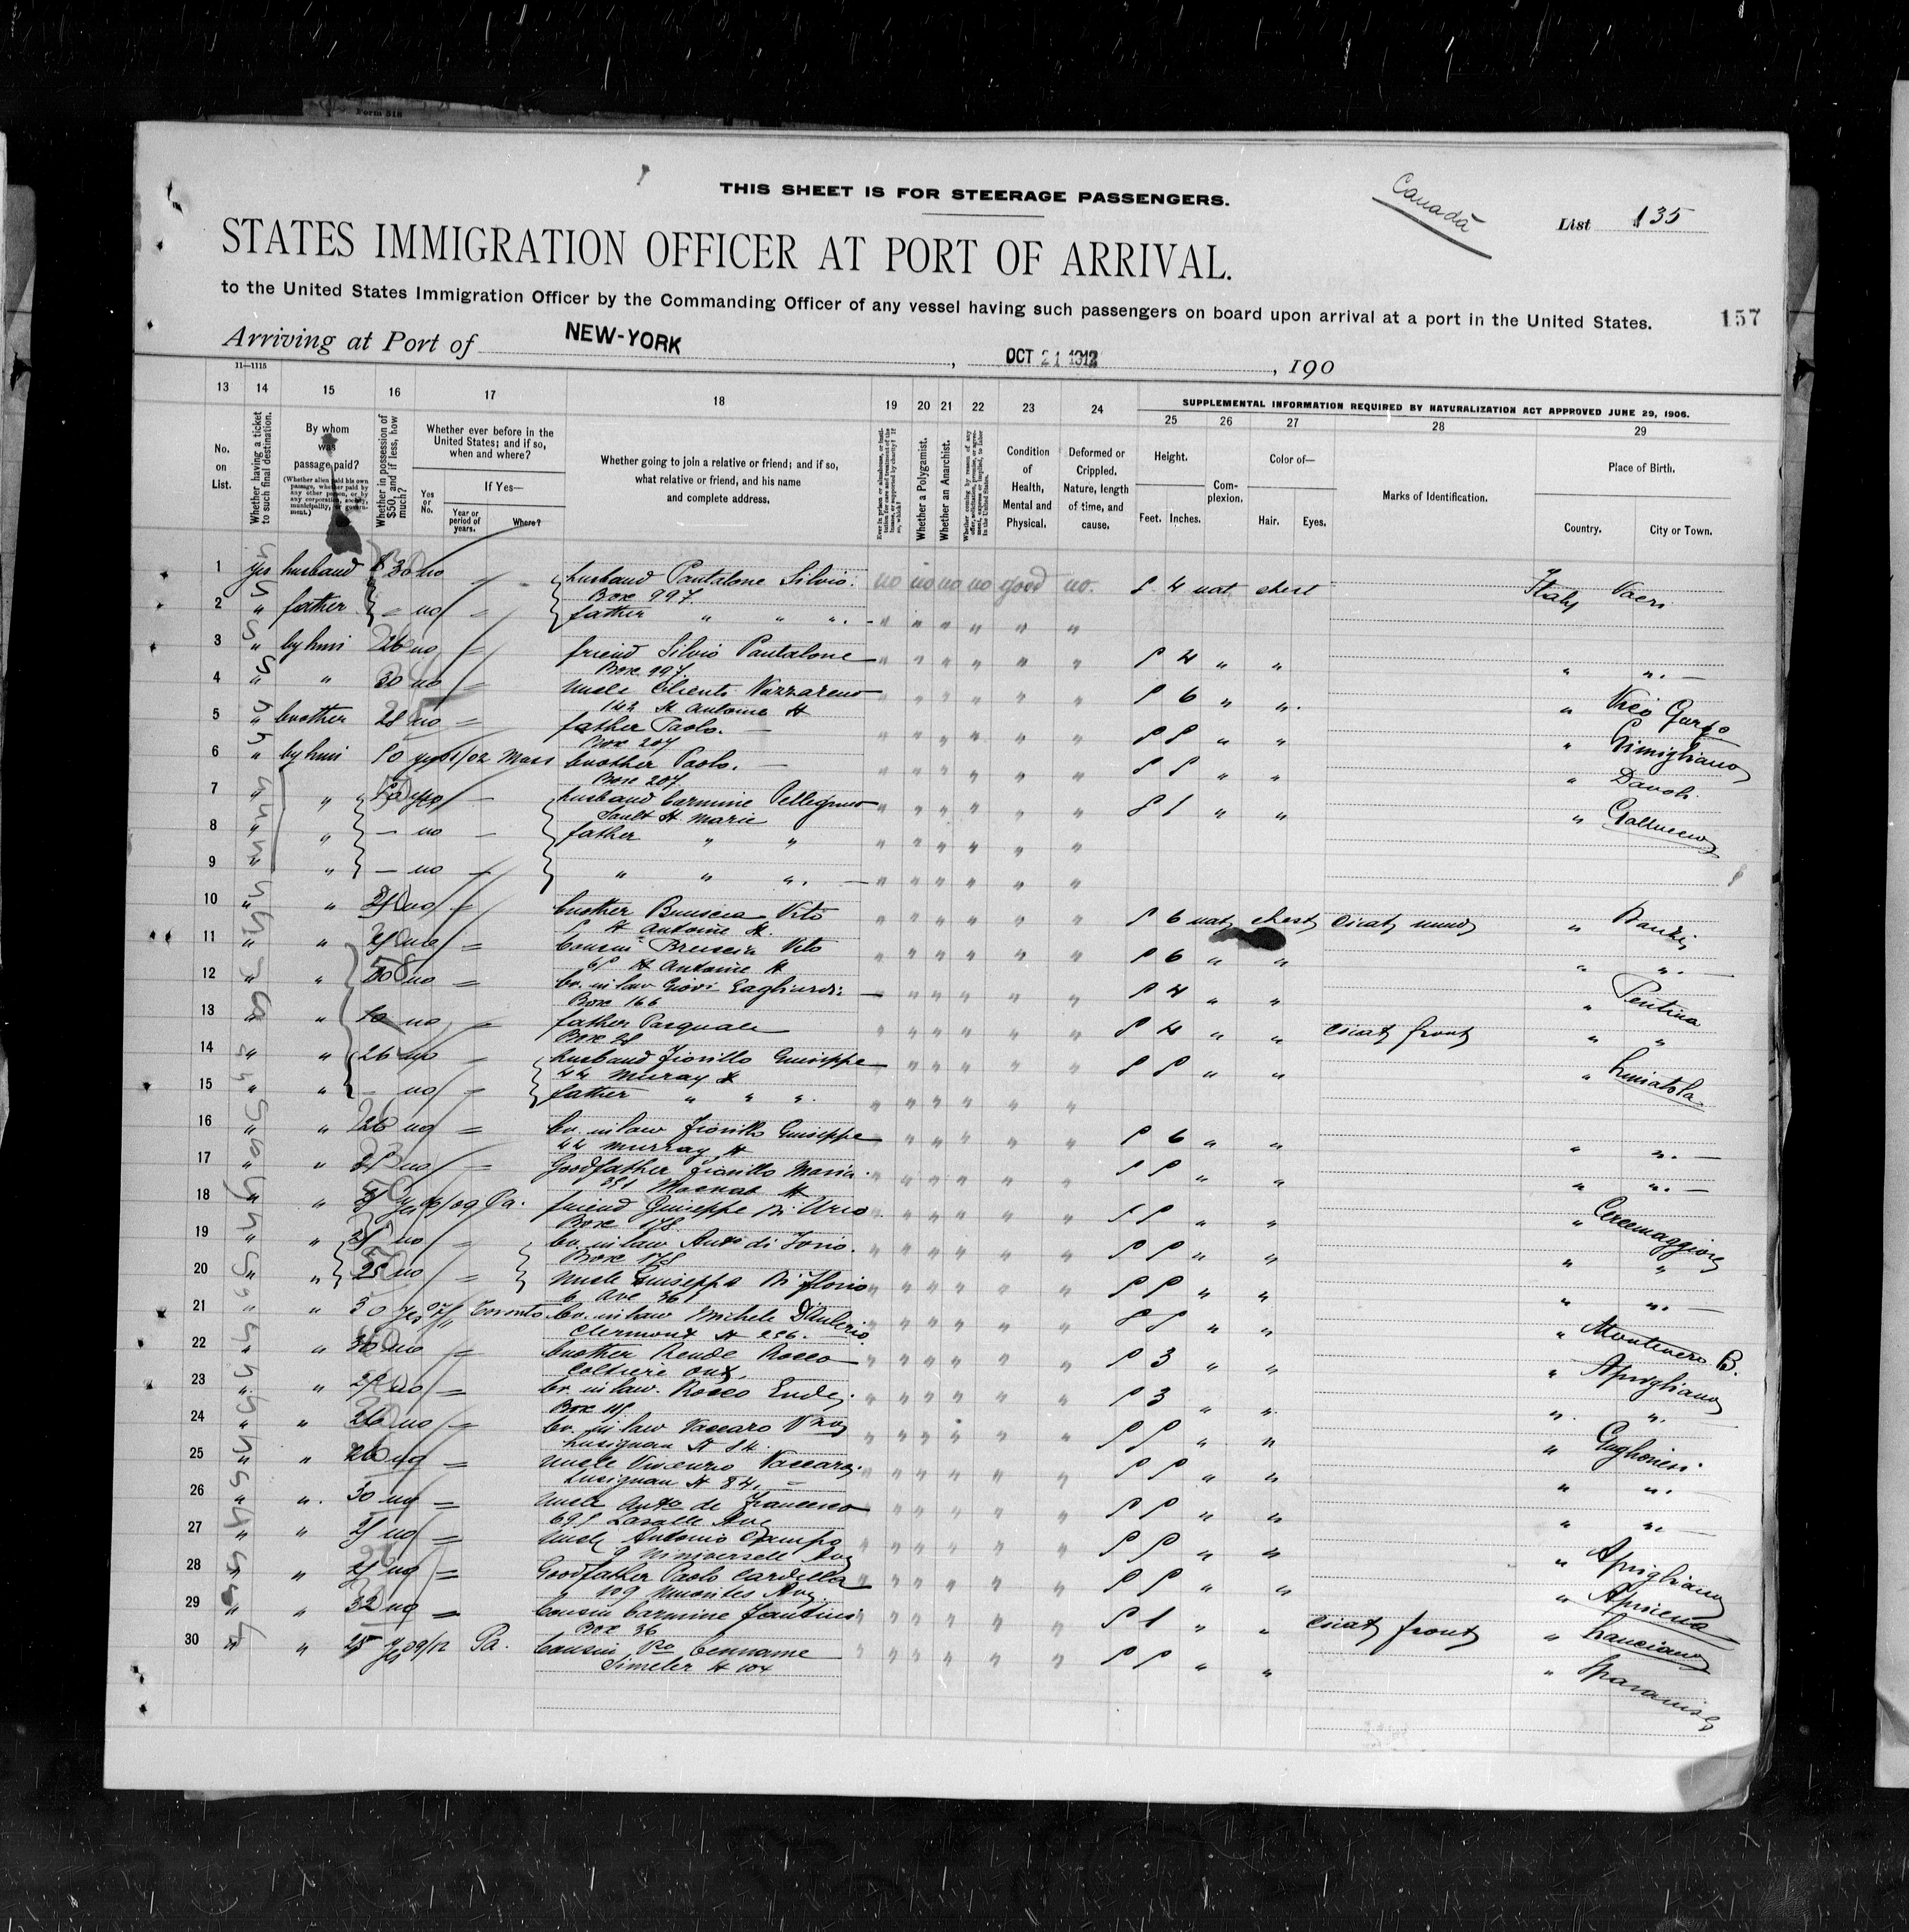 Form 318
THIS SHEET IS FOR STEERAGE PASSENGERS.
Canada
List 135
STATES IMMIGRATION OFFICER AT PORT OF ARRIVAL.
to the United States Immigration Officer by the Commanding Officer of any vessel having such passengers on board upon arrival at a port in the United States.
157
Arriving at Port of NEW-YORK, OCT 21 1912, 190
11—1115
13 14 15 16 17 18 19 20 21 22 23 24
SUPPLEMENTAL INFORMATION REQUIRED BY NATURALIZATION ACT APPROVED JUNE 29, 1906.
25 26 27 28 29
No. on List.
Whether having a ticket to such final destination.
By whom was passage paid?
(Whether alien paid his own passage, whether paid by any other person, or by any corporation, society, municipality, or government.)
Whether in possession of $50, and if less, how much?
Whether ever before in the United States; and if so, when and where?
Yes or No.
If Yes—
Year or period of years.
Where?
Whether going to join a relative or friend; and if so, what relative or friend, and his name and complete address.
Ever in prison or almshouse, or institution for care and treatment of the insane, or supported by charity? If so, which?
Whether a Polygamist.
Whether an Anarchist.
Whether coming by reason of any offer, solicitation, promise, or agreement, express or implied, to labor in the United States.
Condition of Health, Mental and Physical.
Deformed or Crippled. Nature, length of time, and cause.
Height.
Feet. Inches.
Complexion.
Color of—
Hair. Eyes.
Marks of Identification.
Place of Birth.
Country. City or Town.
1 yes husband $ 30 no husband Pantalone Silvio no no no no good no. 5 4 nat chest Italy Vacri
Box 997.
2 " father - no = father " " " " " " " " "
3 " by him 26 no = friend Silvio Pantalone " " " " " " 5 4 " " " "
Box 997.
4 " " 30 no = uncle Clienti Nazzareno " " " " " " 5 6 " " " Vico Gargo
142 St Antoine St
5 " brother 28 no = father Paolo. " " " " " " 5 5 " " " Gimigliano
Box 207
6 " by him 50 yes 01/02 Mass brother Paolo. " " " " " " 5 5 " " " Davoli
Box 207.
7 " " yes — husband Carmine Pellegrino " " " " " " 5 1 " " " Galluccio
Sault St. Marie
8 " " — no — father " " " " " " " "
9 " " — no — " " " " " " " " "
10 " " no = brother Bruscia Vito " " " " " " 5 6 nat chest " Banzi
St Antoine St.
11 " " no = cousin Bruscia Vito " " " " " " 5 6 " " " "
65 St Antoine St
12 " " no = br. in law Giovi Gagliardi " " " " " " 5 4 " " " Pentina
Box 166
13 " " no = father Pasquale " " " " " " 5 4 " " cicat front " "
Box 28
14 " " 26 no = husband Fiorillo Guiseppe " " " " " " 5 5 " " "
44 Muray St
15 " " — no = father " " " " " " " " "
16 " " 26 no = br. in law Fiorillo Guiseppe " " " " " " 5 6 " " " "
44 Murray St
17 " " no = Goodfather Fiorillo Maria " " " " " " 5 5 " " " "
351 Macnab St
18 " " yes 06/09 Pa. friend Guiseppe Di Urio " " " " " " 5 5 " " " Cercemaggiore
Box 178
19 " " 25 no = br. in law Anto di Iorio. " " " " " " 5 5 " " " "
Box 178
20 " " 25 no = uncle Guiseppe Di Florio " " " " " " 5 5 " " " "
6 Ave 361
21 " " 30 yes 07/11 Toronto br. in law Michele D'Aulerio " " " " " " 5 5 " " " Montenero B.
Clermont St 256.
22 " " 30 no = brother Rende Rocco " " " " " " 5 3 " " " Aprigliano
Ont.
23 " " no = br. in law. Rocco Ende. " " " " " " 5 3 " " " "
Box 115
24 " " 26 no = br. in law Vaccaro Vzo " " " " " " 5 5 " " " Guglionesi
Lusignan St 84.
25 " " 26 no = uncle Vincenzo Vaccaro. " " " " " " 5 5 " " " "
Lusignan St 84.
26 " " 30 no = uncle Anto de Francesco " " " " " " 5 5 " " " "
695 Lasalle Ave
27 " " 25 no = uncle Antonio " " " " " " 5 5 " " " Aprigliano
Ave
28 " " 25 no = Goodfather Paolo Cardella " " " " " " 5 5 " " " Apricena
109 Ave.
29 " " 32 no = cousin Carmine Fantini " " " " " " 5 1 " " cicat front " Lanciano
Box 36
30 " " 25 yes 09/12 Pa. cousin Pco Cenname " " " " " " 5 5 " " " Sparanise
Simeler St 104